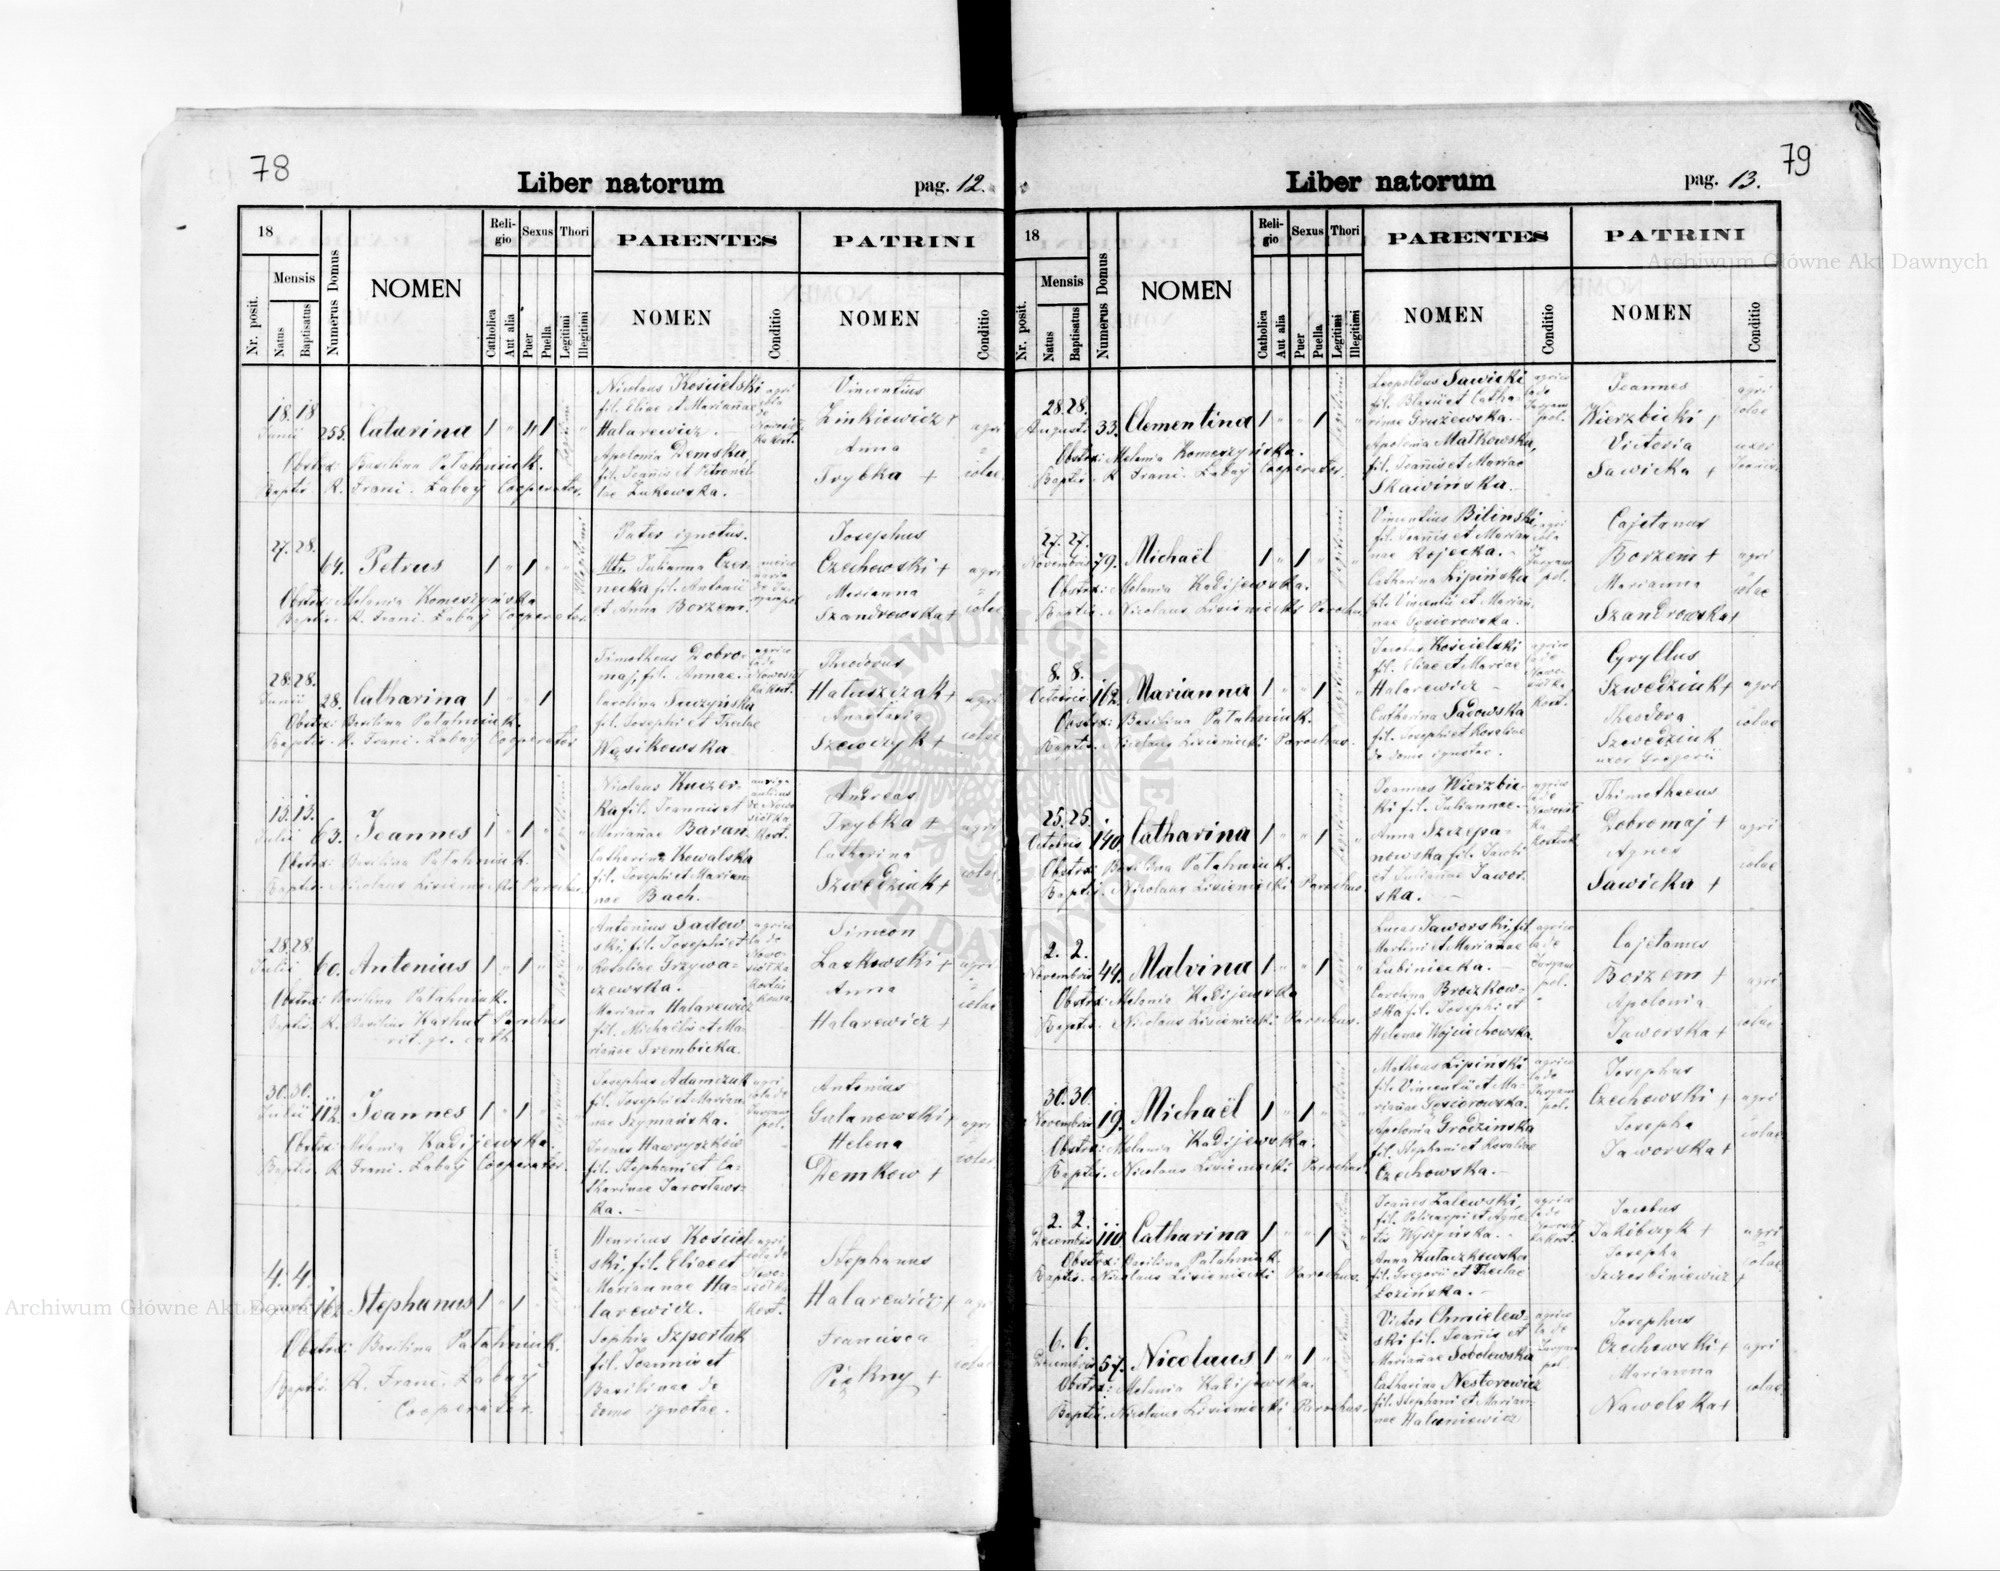 78
Liber natorum
pag. 12.
18
Nr. posit.
Mensis
Natus
Baptisatus
Numerus Domus
NOMEN
Reli-
gio
Catholica
Aut alia
Sexus
Puer
Puella
Thori
Legitimi
Illegitimi
PARENTES
NOMEN
Conditio
PATRINI
NOMEN
Conditio
18. 18.
Junii 255. Catarina 1 1
Obstrx: Basilina Patahniuk.
Bapts. R. Franc. Łabaj Cooperator.
Nicolaus Kościelski
fil. Eliae et Mariañae
Halarewicz. —
Apolonia Demska,
fil. Joañis et Petronel-
lae Żukowska.
Vincentius
Zinkiewicz +
Anna
Trybka +
27. 28.
64. Petrus 1 1
Obstrx: Melania Komoszyńska
Bapts. R. Franc. Łabaj Cooperator.
Pater ignotus.
Mtr. Julianna Czer-
necka fil. Antonii
et Anna Borzem.
Josephus
Czechowski +
Marianna
Szandrowska +
28. 28.
Junii 28. Catharina 1 1
Obstrx: Basilina Patahniuk.
Bapts. R. Franc. Łabaj Cooperator
Timotheus Dobro-
maj, fil. Annae.
Carolina Suczyńska
fil. Josephi et Theclae
Wąsikowska
Theodorus
Hatuszczak +
Anastasia
Szewczyk +
13. 13.
Julii 63. Joannes 1 1
Obstrx: Basilina Patahniuk.
Bapts. Nicolaus Lisieniecki Parochus.
Nicolaus Kuczer-
ka fil. Joannis et
Marianae Baran
Catharina Kowalska
fil. Josephi et Marian-
nae Bach.
Andreas
Trybka +
Catharina
Szwedziuk +
28. 28.
Julii 60. Antonius 1 1
Obstrx: Basilina Patahniuk.
Bapts. R. Basilius Karhut Parochus
rit. gr. cath.
Antonius Sadow-
ski, fil. Josephi et
Rosaliae Grzywa-
czewska.
Mariaña Halarewicz
fil. Michaelis et Ma-
riañae Trembicka.
Simeon
Laskowski +
Anna
Halarewicz +
30. 30.
Julii 112. Joannes 1 1
Obstrx: Melania Kadijewska.
Bapts. R. Franc. Łabaj Cooperator.
Josephus Adamczuk
fil. Josephi et Marian-
nae Szymańska.
Irenes Hawryszków
fil. Stephani et Ca-
tharinae Jarosławs-
ka. —
Antonius
Gulanowski +
Helena
Demkow +
4. 4.
162. Stephanus 1 1
Obstrx: Basilina Patahniuk.
Bapts. R. Franc. Łabaj
Cooperator.
Henricus Kościel-
ski, fil. Eliae et
Mariannae Ha-
larewicz. —
Sophia Szportak
fil. Joannis et
Basilinae de
domo ignotae.
Stephanus
Halarewicz +
Francisca
Piękny +
79
Liber natorum
pag. 13.
18
Nr. posit.
Mensis
Natus
Baptisatus
Numerus Domus
NOMEN
Reli-
gio
Catholica
Aut alia
Sexus
Puer
Puella
Thori
Legitimi
Illegitimi
PARENTES
NOMEN
Conditio
PATRINI
NOMEN
Conditio
28. 28.
Augusti 33. Clementina 1 1
Obstrx: Melania Komoszyńska.
Bapts. R. Franc. Łabaj Cooperator.
Leopoldus Sawicki
fil. Blasii et Catha-
rinae Grużewska.
Apolonia Małkowska,
fil. Joañis et Mariae
Skawińska.
Joannes
Wierzbicki +
Victoria
Sawicka +
27. 27.
Novembris 79. Michaël 1 1
Obstrx: Melania Kadijewska.
Bapts. Nicolaus Lisieniecki Parochus.
Vincentius Biliński,
fil. Joañis et Marian-
nae Rojecka. —
Catharina Lipińska
fil. Vincentii et Marian-
nae Gąsiorowska.
Cajetanus
Borzem +
Marianna
Szandrowska +
8. 8.
Octobris 162. Marianna 1 1
Obstrx: Basilina Patahniuk.
Bapts. Nicolaus Lisieniecki Parochus.
Jacobus Kościelski
fil. Eliae et Mariae
Halarewicz —
Catharina Sadowska
fil. Josephi et Rosaliae
de domo ignotae.
Cyryllus
Szwedziuk +
Theodora
Szwedziuk
uxor Gregorii
25. 25.
Octobris 140. Catharina 1 1
Obstrx: Basilina Patahniuk.
Bapts. Nicolaus Lisieniecki Parochus.
Joannes Wierzbic-
ki fil. Juliannae.
Anna Szczepa-
nowska fil. Jacobi
et Julianae Jawor-
ska. —
Thimothaeus
Dobromaj +
Agnes
Sawicka +
2. 2.
Novembris 44. Malvina 1 1
Obstrx: Melania Kadijewska
Bapts. Nicolaus Lisieniecki Parochus.
Lucas Jaworski, fil.
Martini et Mariañae
Lubiniecka. —
Carolina Broczkow-
ska fil. Josephi et
Helenae Wojciechowska.
Cajetanus
Borzem +
Apolonia
Jaworska +
30. 30.
Novembris 19. Michaël 1 1
Obstrx: Melania Kadijewska.
Bapts. Nicolaus Lisieniecki Parochus.
Matheus Lipiński
fil. Vincentii et Ma-
riañae Gąsiorowska.
Apolonia Grodzinska
fil. Stephani et Rosaliae
Czechowska. —
Josephus
Czechowski +
Josepha
Jaworska +
2. 2.
Decembris 110. Catharina 1 1
Obstrx: Basilina Patahniuk.
Bapts. Nicolaus Lisieniecki Parochus.
Joañes Zalewski,
fil. Policarpi et Agne-
tis Wyszyńska. —
Anna Kułaczkowska
fil. Gregorii et Theclae
Łozińska. —
Jacobus
Jakóbczyk +
Josepha
Szczerbiniewicz +
6. 6.
Decembris 57. Nicolaus 1 1
Obstrx: Melania Kadijewska.
Bapts. Nicolaus Lisieniecki Parochus.
Victor Chmielew-
ski fil. Joañis et
Mariañae Sobolewska
Catharina Nestorowicz
fil. Stephani et Marian-
nae Haluniewicz
Josephus
Czechowski +
Marianna
Nawolska +
Archiwum Główne Akt Dawnych
Archiwum Główne Akt Dawnych
ARCHIWUM GŁÓWNE AKT DAWNYCH